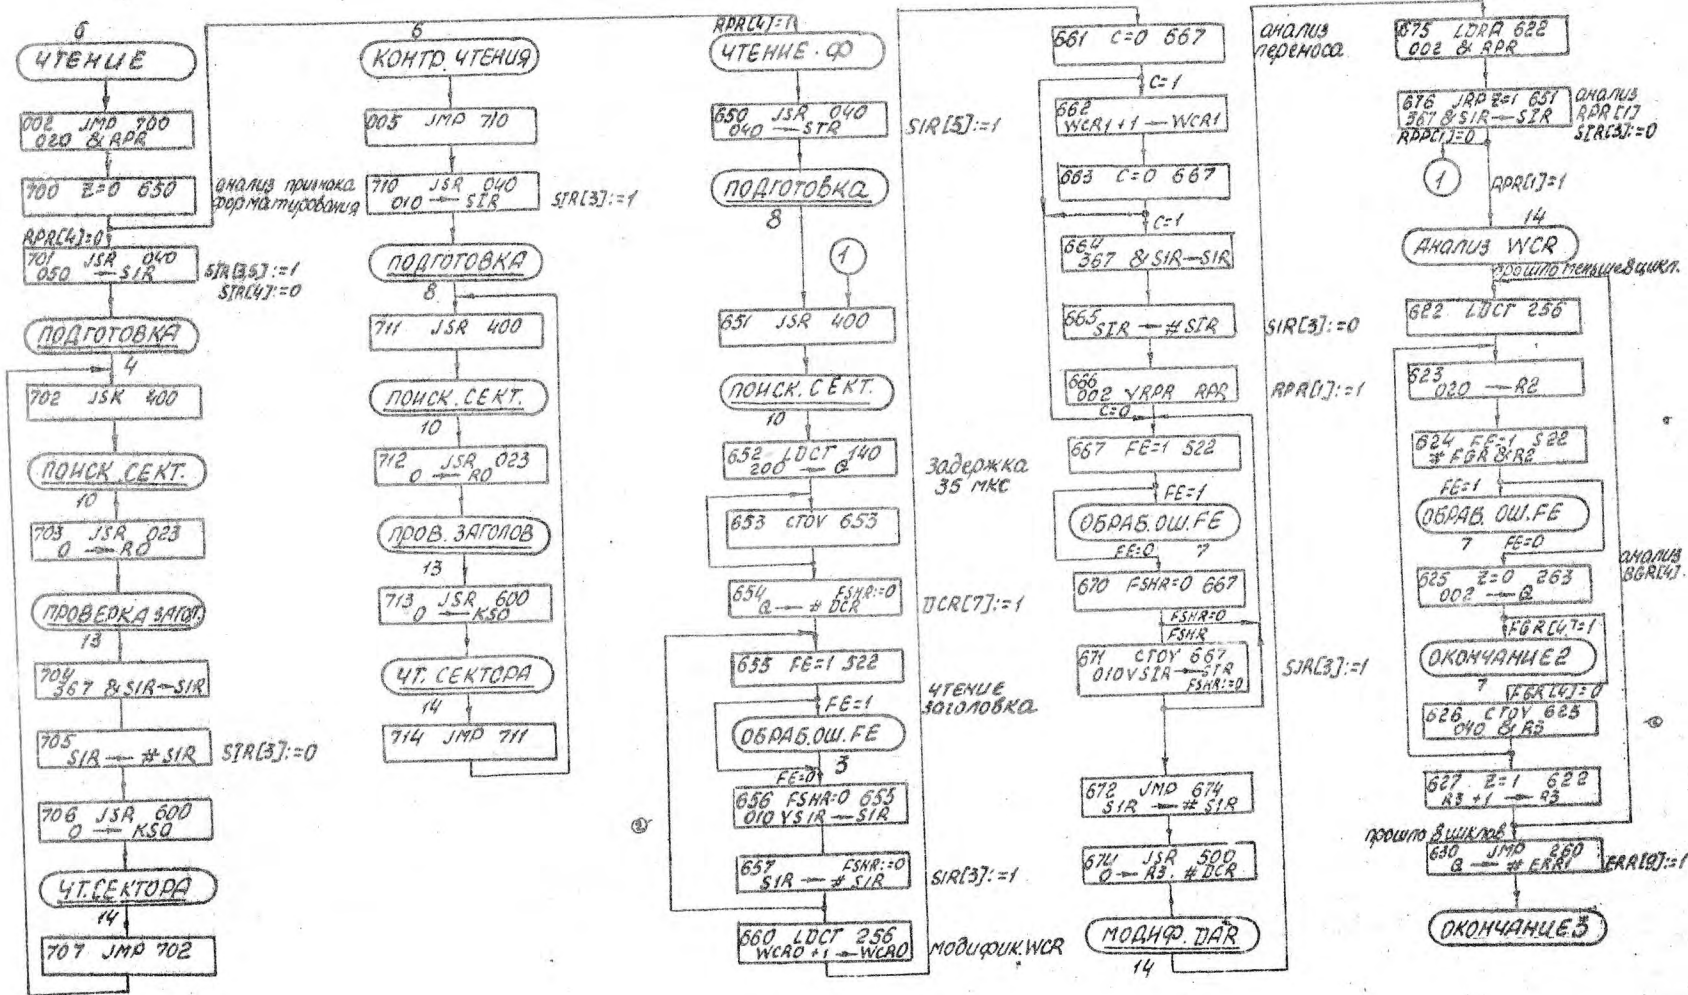 6
ЧТЕНИЕ
002 JMP 700
020 & RPR
700 Z=0 650
анализ признака
форматирования
RPR[4]=0
701 JSR 040
050 → SIR
SIR[3,5]:=1
SIR[4]:=0
ПОДГОТОВКА
4
702 JSR 400
ПОИСК СЕКТ.
10
703 JSR 023
0 → R0
ПРОВЕРКА ЗАГОЛ.
13
704
367 & SIR → SIR
705
SIR → # SIR
SIR[3]:=0
706 JSR 600
0 → KSO
ЧТ. СЕКТОРА
14
707 JMP 702
6
КОНТР. ЧТЕНИЯ
005 JMP 710
710 JSR 040
010 → SIR
SIR[3]:=1
ПОДГОТОВКА
8
711 JSR 400
ПОИСК. СЕКТ.
10
712 JSR 023
0 → R0
ПРОВ. ЗАГОЛОВ
13
713 JSR 600
0 → KSO
ЧТ. СЕКТОРА
14
714 JMP 711
RPR[4]=1
ЧТЕНИЕ · Ф
650 JSR 040
040 → SIR
SIR[5]:=1
ПОДГОТОВКА
8
1
651 JSR 400
ПОИСК. СЕКТ.
10
652 LDCT 140
200 → Q
Задержка
35 мкс
653 CTOV 653
654 FSHR:=0
Q → # DCR
DCR[7]:=1
655 FE=1 522
чтение
заголовка
FE=1
ОБРАБ. ОШ. FE
FE=0
3
656 FSHR=0 655
010 V SIR → SIR
657 FSHR:=0
SIR → # SIR
SIR[3]:=1
660 LDCT 256
WCR0 +1 → WCR0
модифик. WCR
661 C=0 667
анализ
переноса
C=1
662
WCR1 +1 → WCR1
663 C=0 667
C=1
664
367 & SIR → SIR
665
SIR → # SIR
SIR[3]:=0
666
002 V RPR RPR
RPR[1]:=1
C=0
667 FE=1 522
FE=1
ОБРАБ. ОШ. FE
FE=0 7
670 FSHR=0 667
FSHR=0
FSHR
671 CTOV 667
010 V SIR → SIR
FSHR:=0
SIR[3]:=1
672 JMP 674
SIR → # SIR
674 JSR 500
0 → R3. # DCR
МОДИФ. DAR
14
675 LDRA 622
002 & RPR
676 JRP Z=1 651
367 & SIR → SIR
анализ
RPR[1]
SIR[3]:=0
RPR[1]=0
1
RPR[1]=1
14
АНАЛИЗ WCR
прошло меньше 8 цикл.
622 LDCT 256
623
020 → R2
624 FE=1 522
# FGR & R2
FE=1
ОБРАБ. ОШ. FE
7 FE=0
анализ
BGR[4].
625 Z=0 263
002 → Q
FGR[4]=1
ОКОНЧАНИЕ 2
7
FGR[4]=0
626 CTOV 623
040 & R3
627 Z=1 622
R3 +1 → R3
прошло 8 циклов
630 JMP 260
Q → # ERR1
ERR[9]:=1
ОКОНЧАНИЕ 3